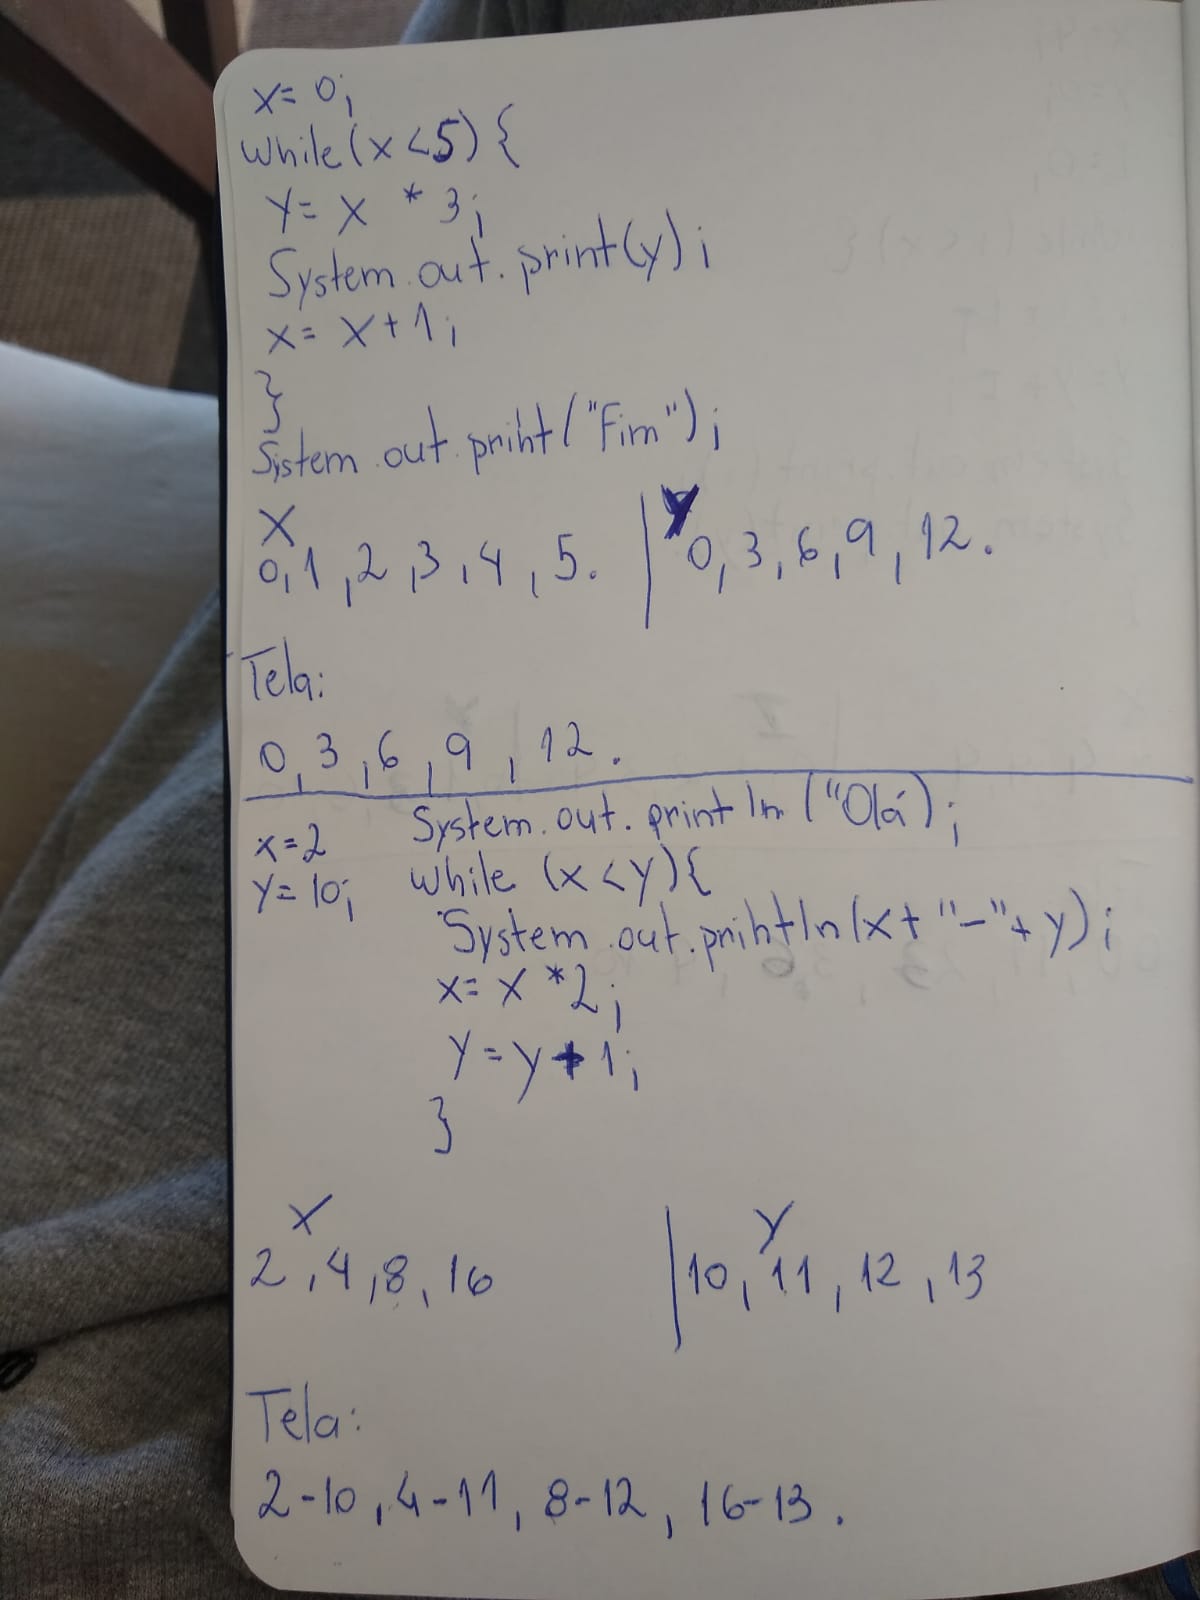 x= 0;
while(x<5){
Y= X * 3;
System.out.print(y);
x= X+1;
}
System.out.print("Fim");
X | Y
0,1,2,3,4,5. | 0,3,6,9,12.
Tela:
0,3,6,9,12.
x=2 System.out.println("Olá);
Y=10; while (x<y){
System.out.println(x+"-"+y);
x= x *2;
Y=y+1;
}
X | Y
2,4,8,16 | 10,11,12,13
Tela:
2-10,4-11,8-12,16-13.